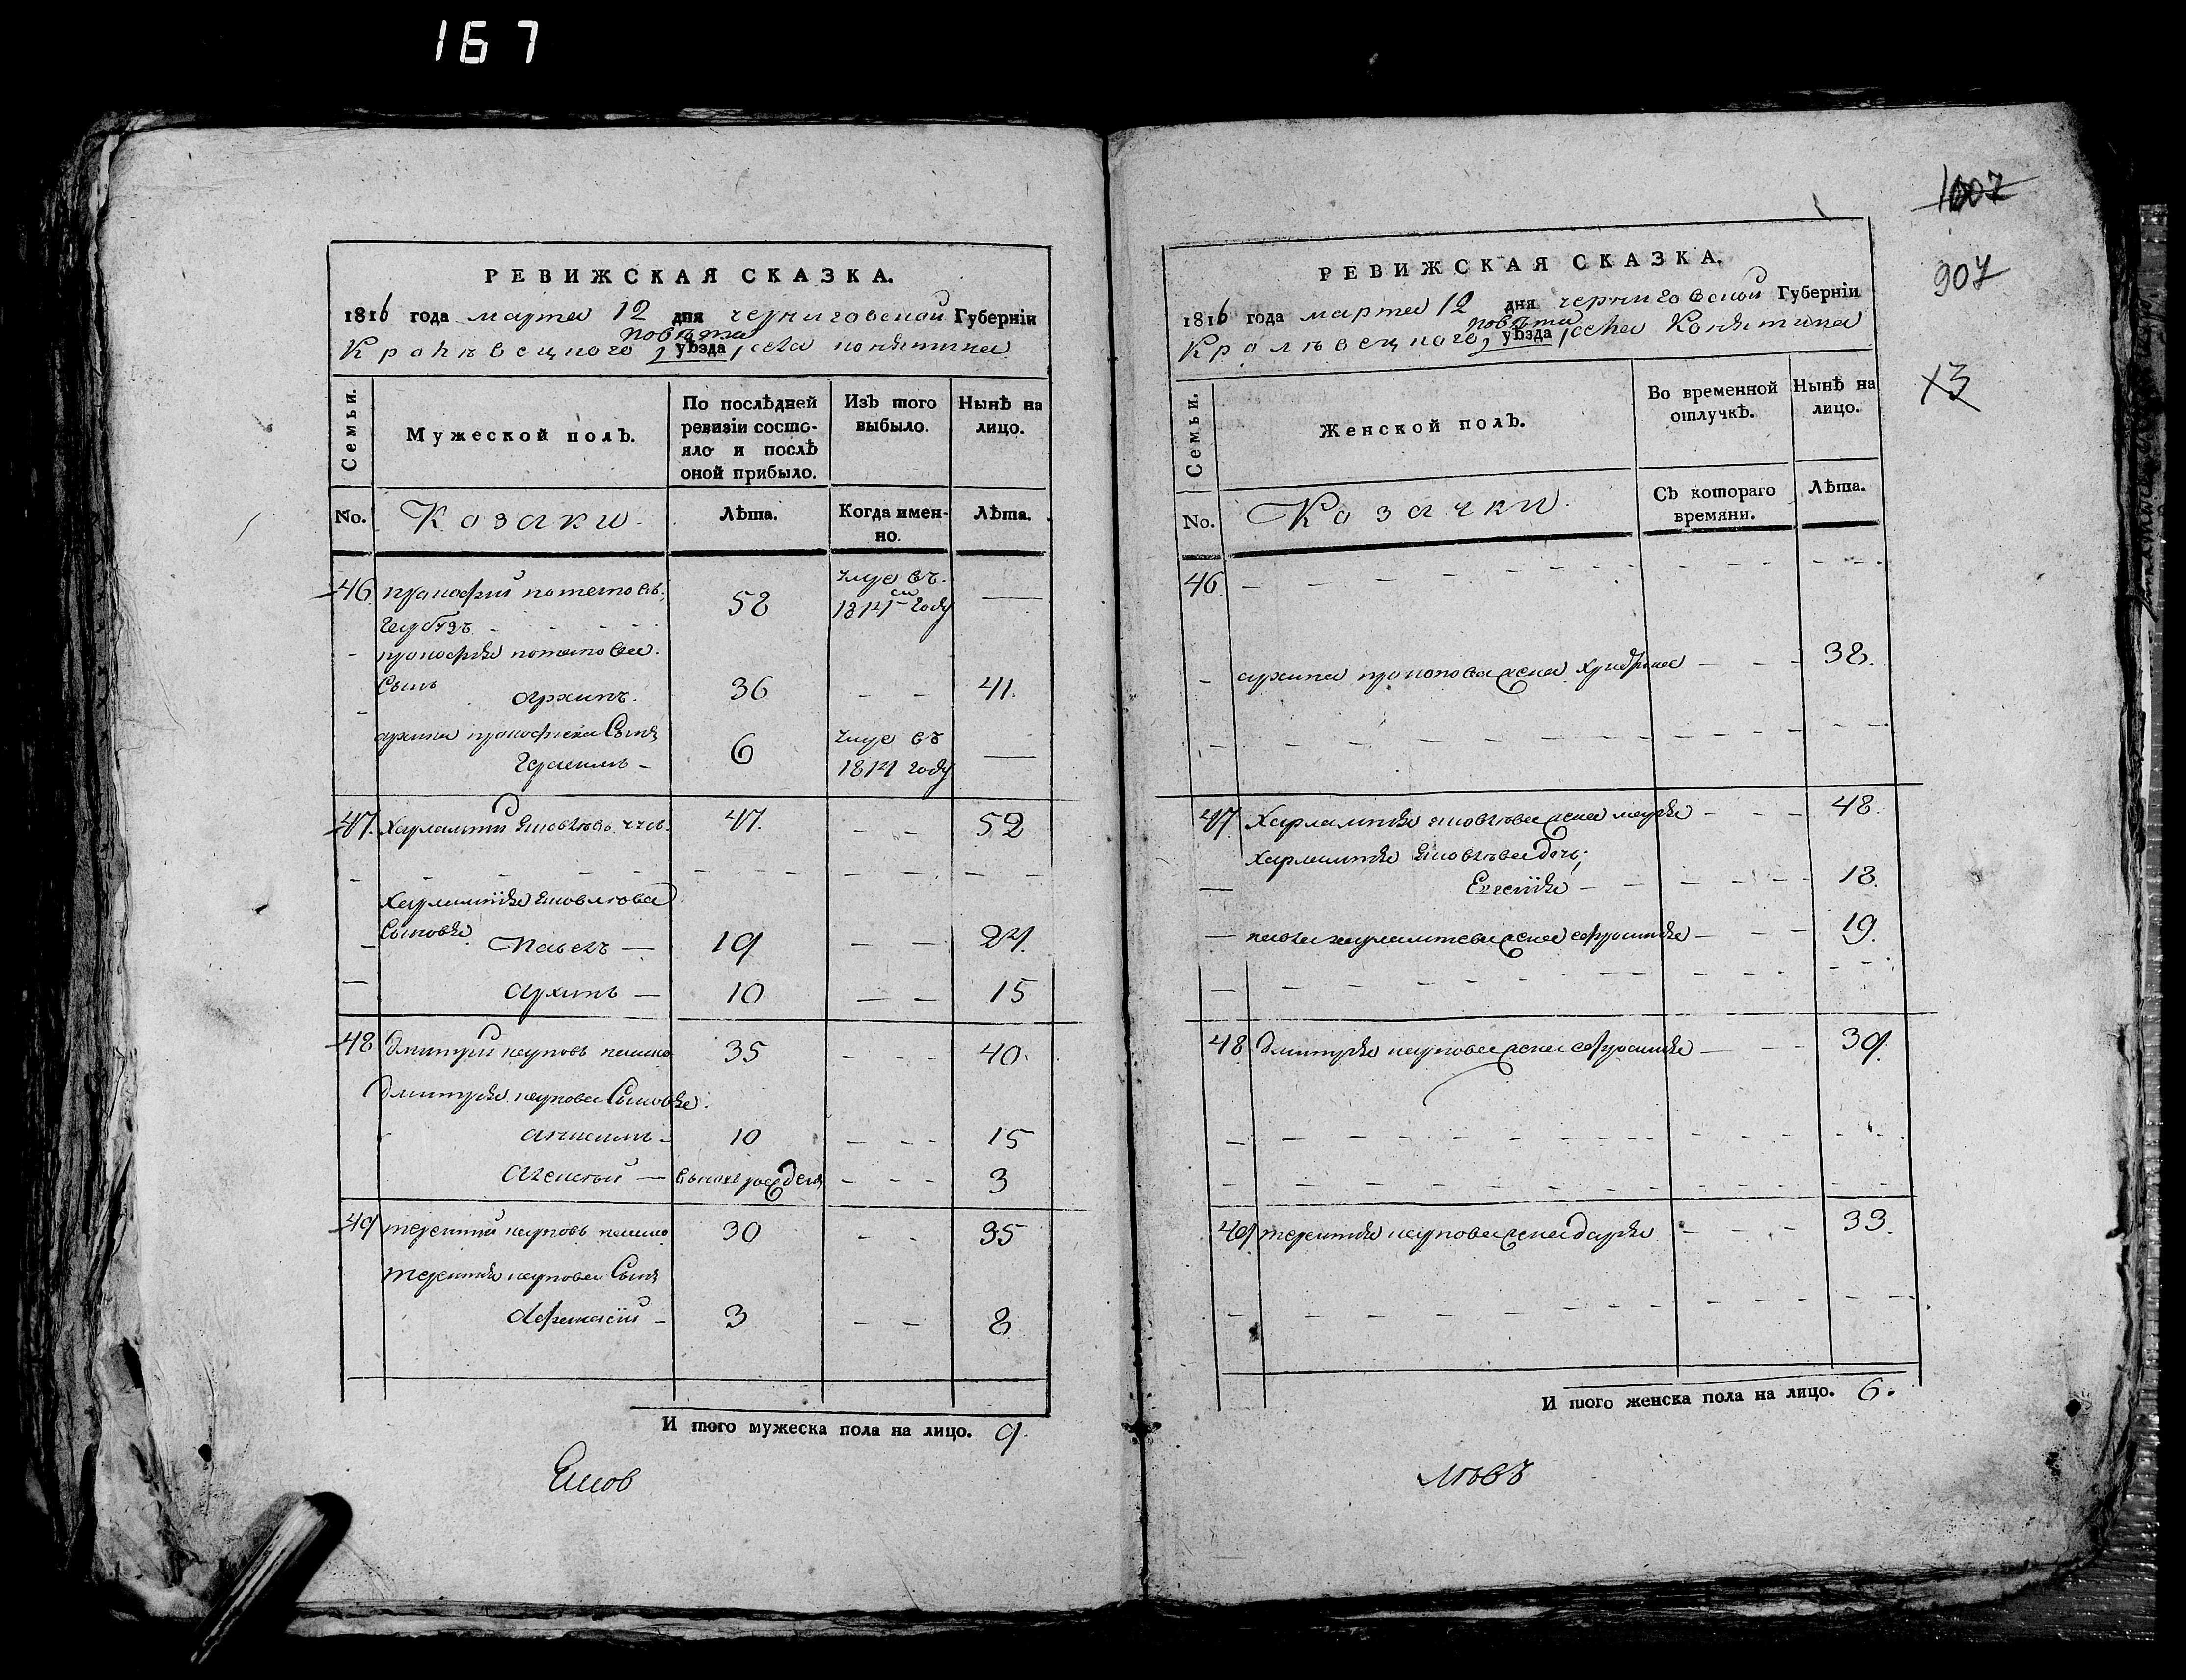 167
РЕВИЖСКАЯ СКАЗКА.
1816 года марта 12 дня черниговской Губерніи
повѣта
Кролѣвецкого уѣзда, села конятина
Семьи.
Мужеской полъ.
По послѣдней ревизіи состо-
яло и послѣ
оной прибыло.
Изъ того выбыло.
Нынѣ на лицо.
No.
Козаки.
Лѣта.
Когда имен-
но.
Лѣта.
46 прокофий потаповъ 58 умре въ 1814 году —
прокофія потапова
сынъ архипъ. 36 — — 41.
архипа прокофиева Сынъ
Герасимъ — 6 умре въ 1814 году —
47. Харлампий яковлѣвъ 47. — — 52
Харлампія яковлѣва
Сыновья Павелъ — 19 — — 24.
архипъ — 10 — — 15
48 дмитрий карповъ 35 — — — 40.
дмитрія карпова Сыновья
10 — — — 15
Алексѣй — вновь рожденъ — — — 3
49 терентий карповъ 30 — — 35
терентія карпова Сынъ
Афанасій — 3 — — 8
И того мужеска пола на лицо. 9.
Яков
1007
907
13
РЕВИЖСКАЯ СКАЗКА.
1816 года марта 12 дня черниговской Губерніи
повѣта
Кролѣвецкого уѣзда, села Конятина
Семьи.
Женской полъ.
Во временной отлучкѣ.
Нынѣ на лицо.
No.
Козачки.
Съ котораго времяни.
Лѣта.
46.
архипа жена 38.
47. Харлампія яковлѣва жена марія — — — 48.
Харлампія яковлѣва дочь,
Евгенія — 18.
павла харлампиева жена ефросинія — — — 19.
48 дмитрія карпова жена ефросинія — — — 39.
49 терентія карпова жена дарія — — — 33.
И того женска пола на лицо. 6.
лѣвъ